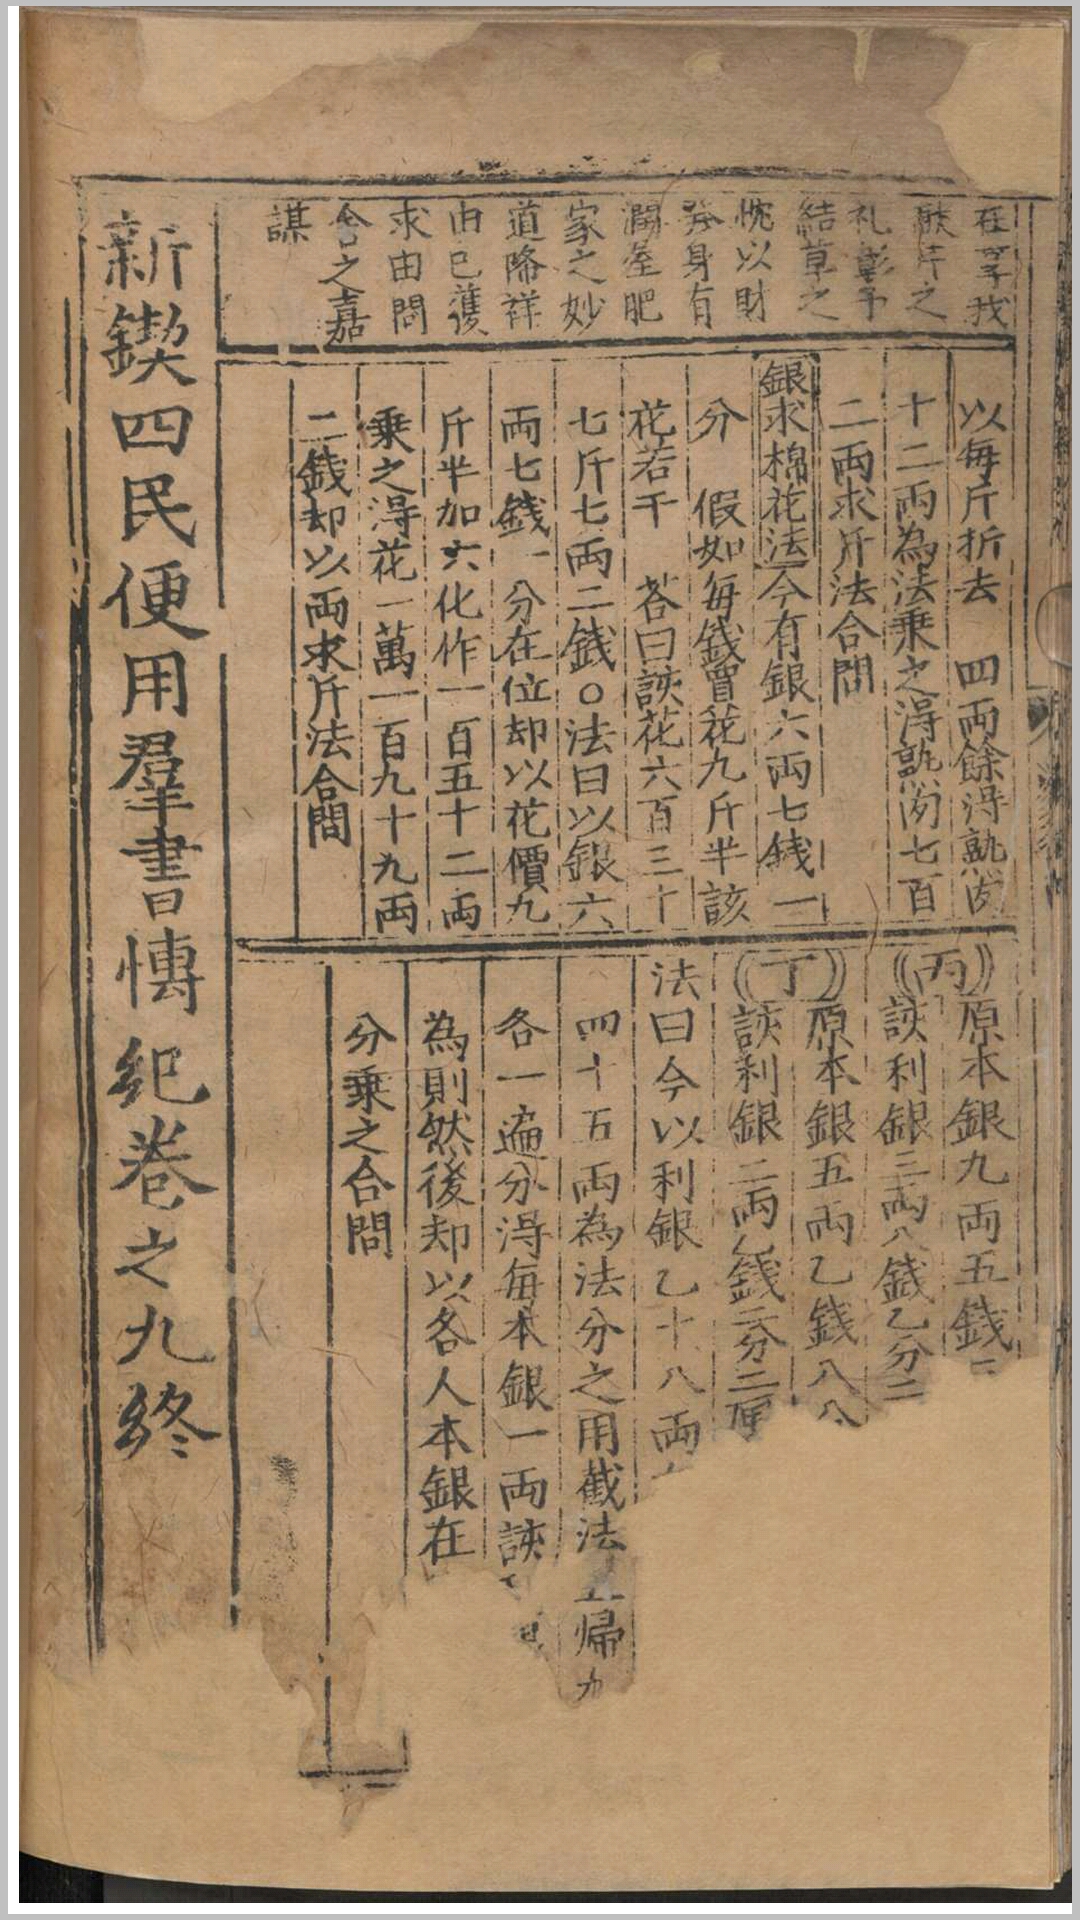 在子我
献芹之
礼彰予
結草之
忱以財
發身有
潤屋肥
家之妙
道降祥
由已獲
求由問
舍之嘉
謀
以每斤折去四兩餘淂熟肉
十二兩為法乗之淂熟肉七百
二兩求斤法合問
銀求棉花法今有銀六兩七錢一
分假如每錢買花九斤半該
花若干荅曰該花六百三十
七斤七兩二錢○法曰以銀六
兩七錢一分在位却以花價九
斤半加六化作一百五十二兩
乗之淂花一萬一百九十九兩
二錢却以兩求斤法合問
丙原本銀九兩五錢
該利銀三兩八錢乙分二
丁原本銀五兩乙錢八
該利銀二兩錢分二厘
法曰今以利銀乙十八兩
四十五兩為法分之用截法歸
各一遍分淂每本銀一兩該
為則然後却以各人本銀在
分乗之合問
新鍥四民便用羣書慱紀巻之九終